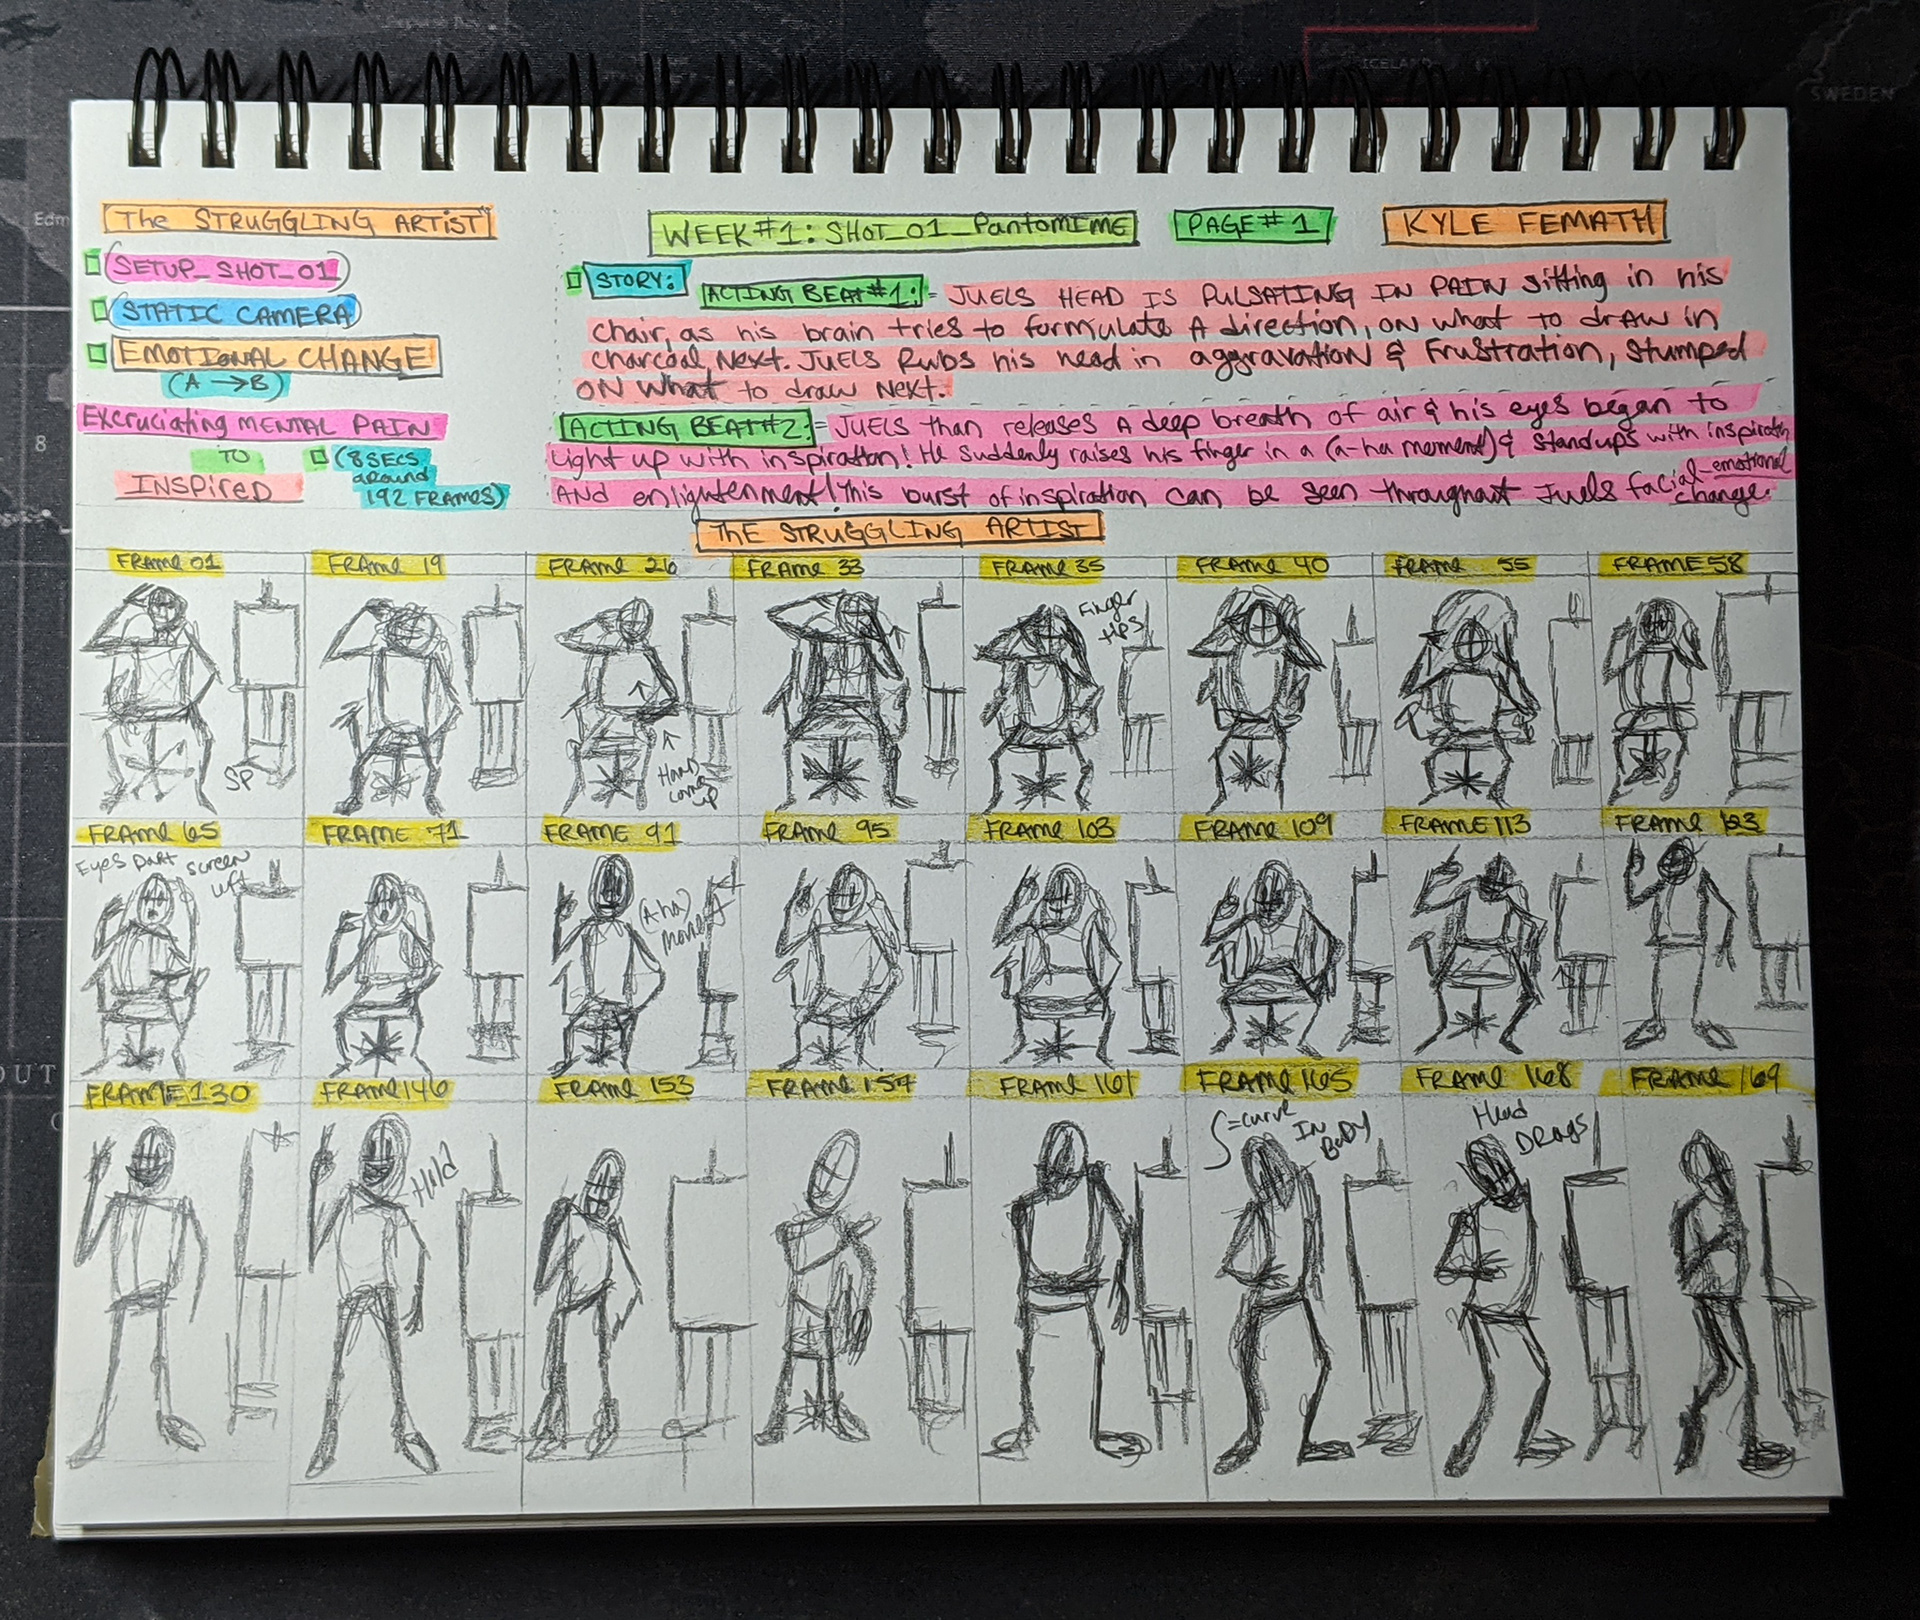 The STRUGGLING ARTiST"
WEEK#1: SHOT_01_PantoMIME
PAGE# 1
KYLE FEMATH
(SETUP_SHOT_01)
(STATIC CAMERA)
EMOTIONAL CHANGE
(A → B)
Excruciating MENTAL PAIN
TO
INSPIRED
(8 SECS
around
192 FRAMES)
STORY:
ACTING BEAT#1: = JUELS HEAD IS PULSATING IN PAIN sitting in his
chair, as his brain tries to formulate A direction, ON what to drAW in
charcoal, Next. JUELS Rubs his head in aggravation & Frustration, Stumped
ON What to draw Next.
ACTING BEAT#2: = JUELS than releases A deep breath of air & his eyes began to
Light up with inspiration! He suddenly raises his finger in a (a-ha moment) & Standups with inspiration
AND enlightenment! This burst of inspiration can be seen throughout Juels facial-emotional
change.
THE STRUGGLING ARTIST
FRAME 01
FRAME 19
FRAME 26
FRAME 33
FRAME 35
FRAME 40
FRAME 55
FRAME 58
SP
Hand
comes
up
Finger
tips
FRAME 65
FRAME 71
FRAME 91
FRAME 95
FRAME 103
FRAME 109
FRAME 113
FRAME 123
Eyes Dart screen
left
(A-ha)
moment
FRAME 130
FRAME 146
FRAME 153
FRAME 157
FRAME 161
FRAME 165
FRAME 168
FRAME 169
Hold
S=curve
IN
BODY
Head
DRAgs
ICELAND
SWEDEN
Edm
8
OUT